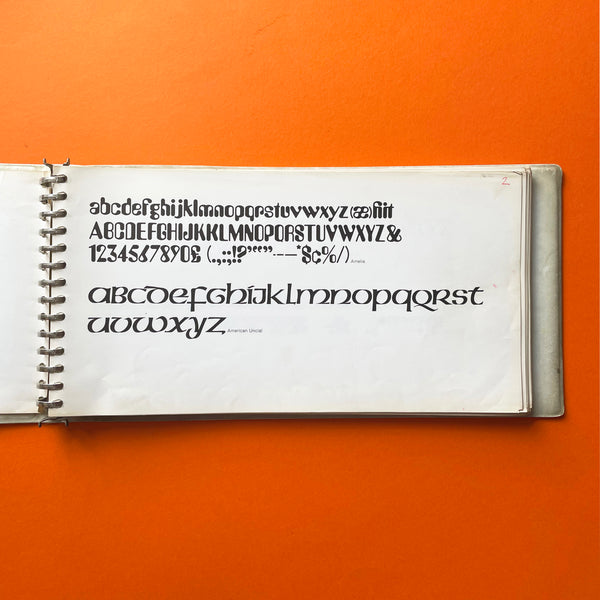 2
abcdefghijklmnopqrstuvwxyz(æ)fiit
ABCDEFGHIJKKLMNOPQRSTUVWXYZ&
1234567890£ (.,:;!?'“”·-–*§¢%/) Amelia
abcdefghíjklmnopqQrst
uvwxyz American Uncial